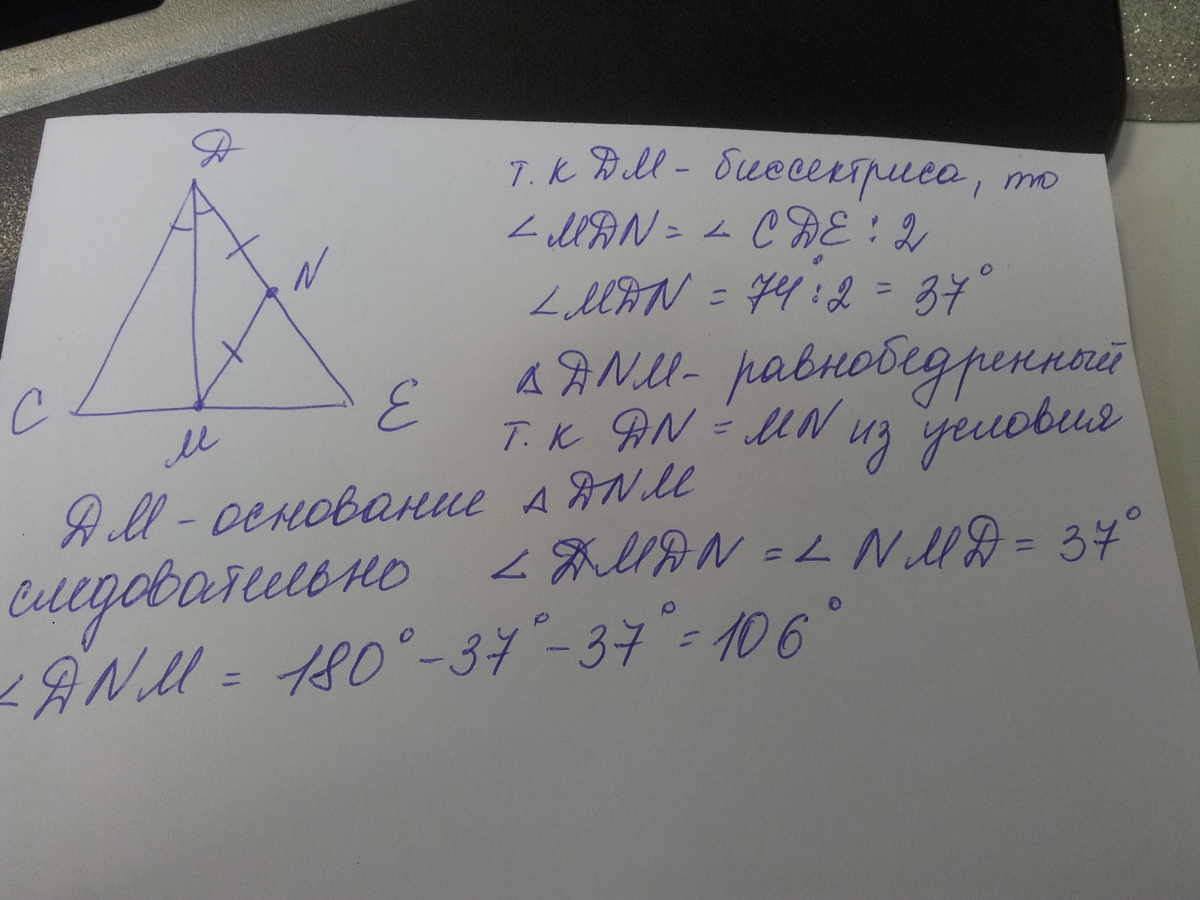 D
N
C
M
E
т. к DM - биссектриса, то
∠MDN = ∠ CDE : 2
∠MDN = 74° : 2 = 37°
△ DNM - равнобедренный
т. к DN = MN из условия
DM - основание △ DNM
следовательно ∠ MDN = ∠ NMD = 37°
∠DNM = 180° - 37° - 37° = 106°